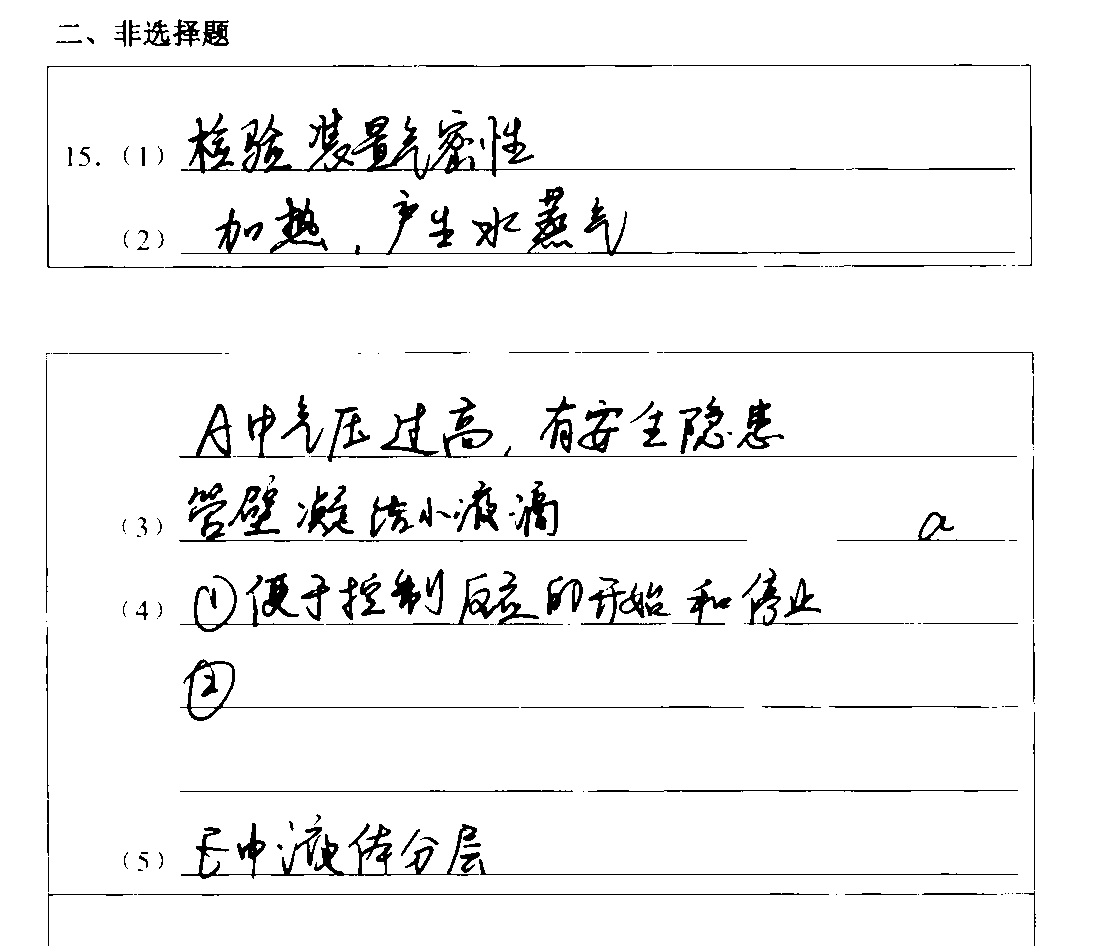 二、非选择题
15.（1）检验装置气密性
（2）加热，产生水蒸气
A中气压过高，有安全隐患
（3）管壁凝结小液滴 a
（4）①便于控制反应的开始和停止
②
（5）E中液体分层